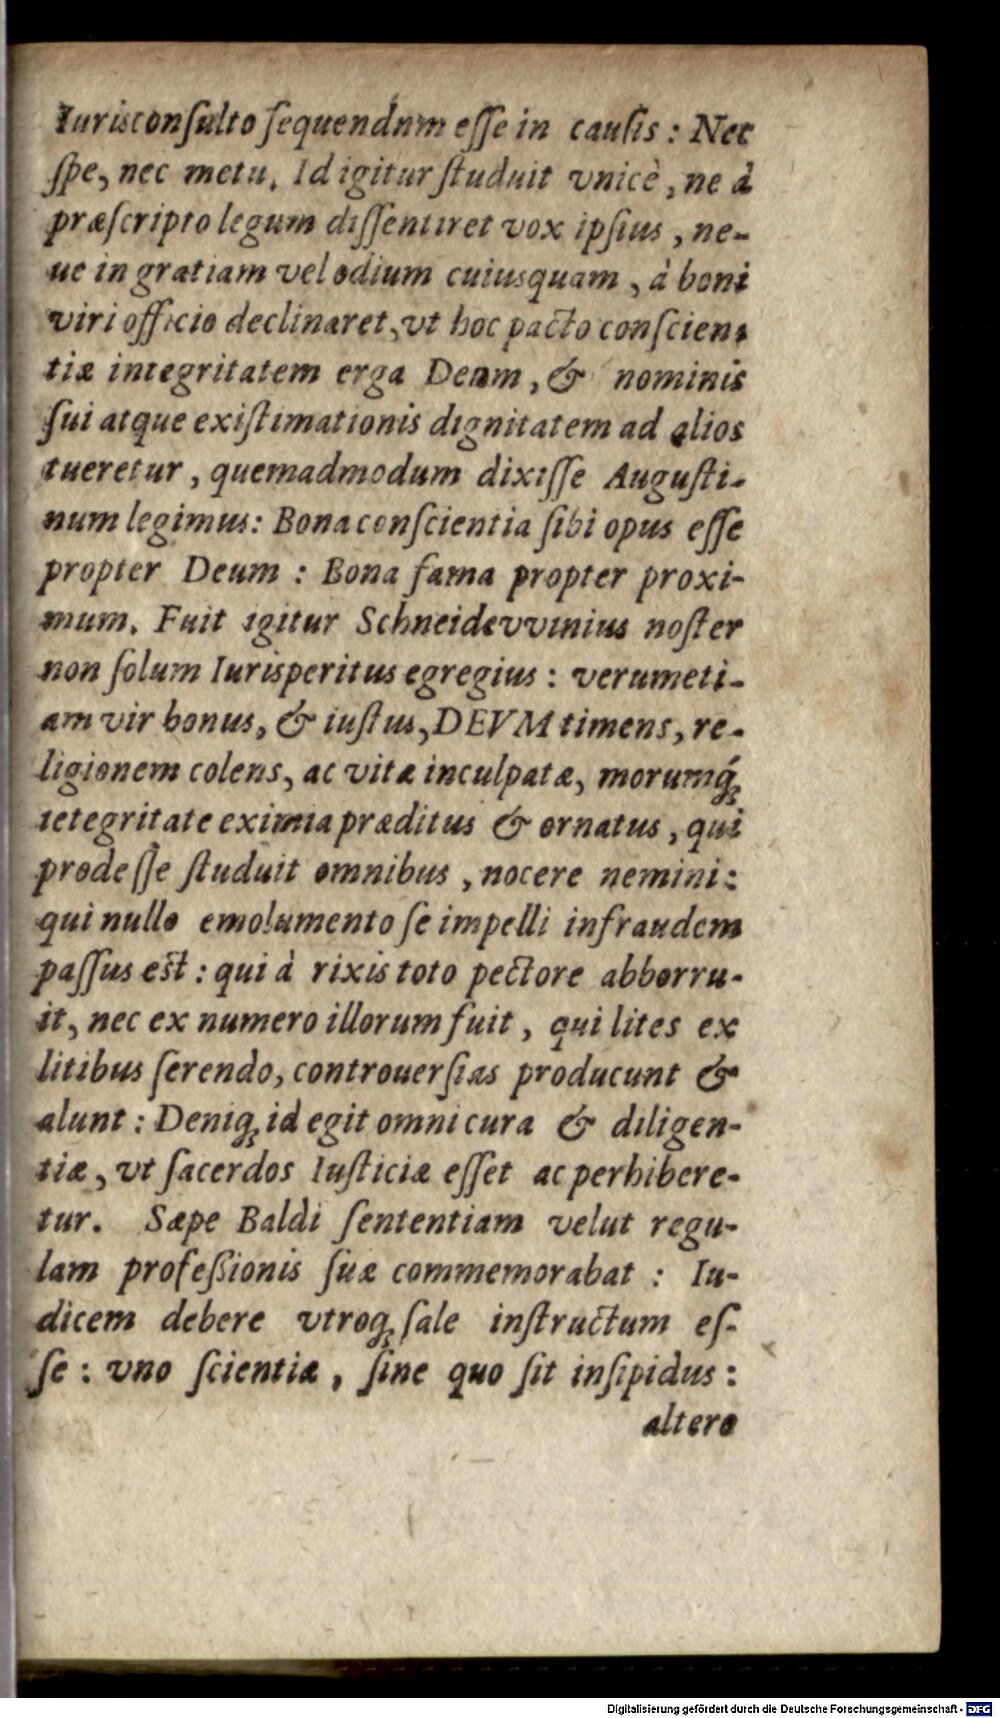 Iurisconſulto ſequendnm eſſe in cauſis : Nec
ſpe, nec metu. Id igitur ſtuduit vnicè, ne à
præſcripto legum diſſentiret vox ipſius, ne-
ue in gratiam vel odium cuiusquam, à boni
viri officio declinaret, vt hoc pacto conſcien-
tiæ integritatem erga Deum, & nominis
ſui atque exiſtimationis dignitatem ad alios
tueretur, quemadmodum dixiſſe Auguſti-
num legimus: Bona conſcientia ſibi opus eſſe
propter Deum : Bona fama propter proxi-
mum. Fuit igitur Schneidevvinius noſter
non ſolum Iurisperitus egregius : verumeti-
am vir bonus, & iuſtus, DEVM timens, re-
ligionem colens, ac vitæ inculpatæ, morumq́;
ietegritate eximia præditus & ornatus, qui
prodeſſe ſtuduit omnibus, nocere nemini:
qui nullo emolumento ſe impelli infraudem
paſſus eſt : qui à rixis toto pectore abhorru-
it, nec ex numero illorum fuit, qui lites ex
litibus ſerendo, controuerſias producunt &
alunt : Deniq; id egit omni cura & diligen-
tiæ, vt ſacerdos Iuſticiæ eſſet ac perhibere-
tur. Sæpe Baldi ſententiam velut regu-
lam profeſsionis ſuæ commemorabat : Iu-
dicem debere vtroq; ſale inſtructum eſ-
ſe : vno ſcientiæ, ſine quo ſit inſipidus :
altero
Digitalisierung gefördert durch die Deutsche Forschungsgemeinschaft - DFG